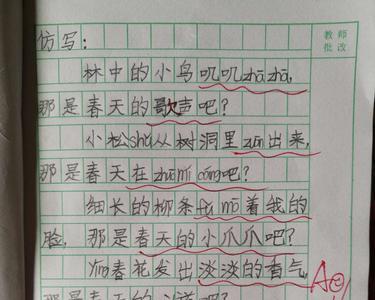 仿写：
教师
批改
林中的小鸟叽叽zhāzhā，
那是春天的歌声吧？
小松shǔ从树洞里zuān出来，
那是春天在zhuōmí cáng吧？
细长的柳条fǔ mō着我的
脸，那是春天的小爪爪吧？
Yíng春花发出淡淡的香气，
那是春天的
吧？